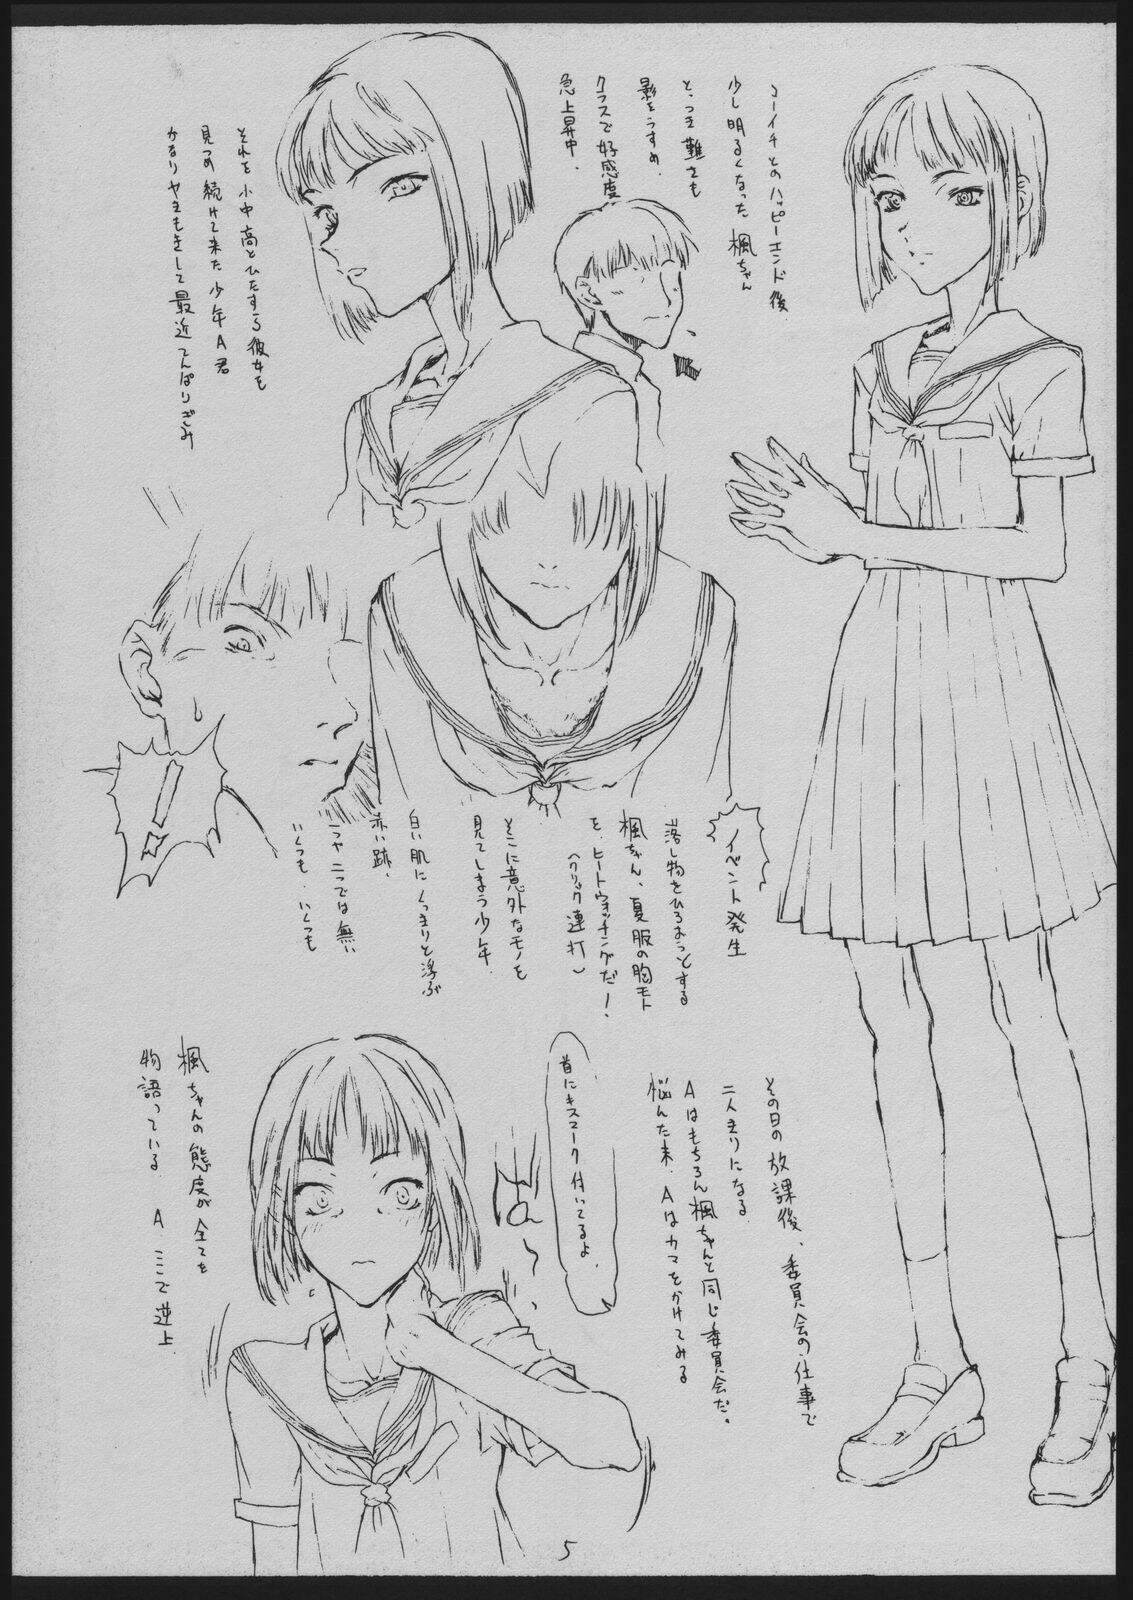 コーイチとのハッピーエンド後
少し明るくなった楓ちゃん
とっつき難さも
影をうすめ、
クラスで好感度
急上昇中、
それを小中高とひたすら彼女を
見つめ続けて来た少年A君
かなりヤキモキして最近てんぱりぎみ
イベント発生
落し物をひろおっとする
楓ちゃん、夏服の胸モト
を、ヒートウォッチングだ!
(クリック連打)
そこに意外なモノを
見てしまう少年、
白い肌にくっきりと浮ぶ
赤い跡、
一つや二つでは無い
いくつも、いくつも
その日の放課後、委員会の仕事で
二人きりになる、
Aはもちろん楓ちゃんと同じ委員会だ。
悩んだ末、Aはカマをかけてみる
首にキスマーク付いてるよ、
ばっ
楓ちゃんの態度が全てを
物語っている、A、ここで逆上
5